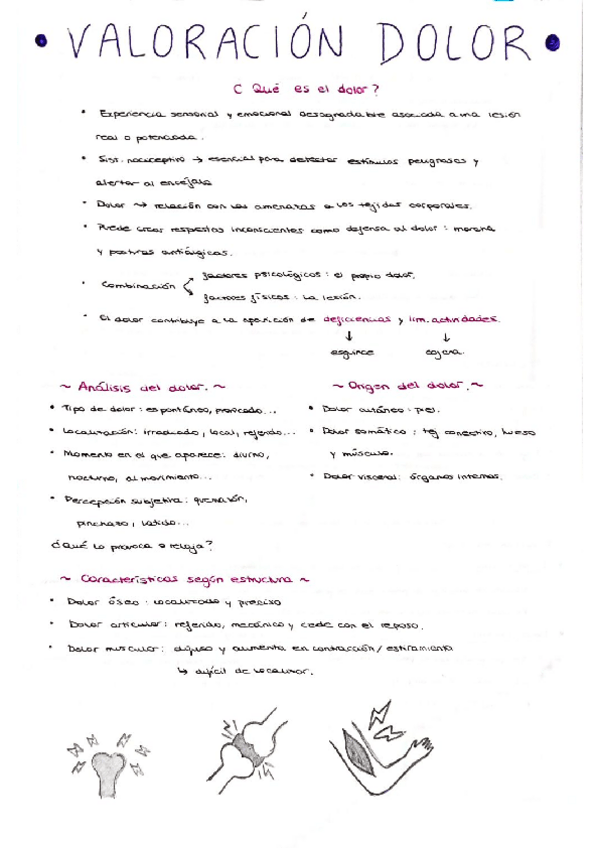 • VALORACIÓN DOLOR •
¿ Qué es el dolor?
• Experiencia sensorial y emocional desagradable asociada a una lesión
real o potenciada.
• Sist. nociceptivo → esencial para detectar estímulos peligrosos y
alertar al encéfalo
• Dolor → relación con las amenazas a los tejidos corporales.
• Puede crear respuestas inconscientes como defensa al dolor: morena
y posturas antiálgicas.
• Combinación
factores psicológicos: el propio dolor.
factores físicos: la lesión.
• El dolor contribuye a la aparición de deficiencias y lim. actividades.
↓ ↓
esguince cojera.
~ Análisis del dolor. ~
• Tipo de dolor: espontáneo, provocado...
• Localización: irradiado, local, referido...
• Momento en el que aparece: diurno,
nocturno, al movimiento...
• Percepción subjetiva: quemazón,
pinchazo, latido...
¿Qué lo provoca o relaja?
~ Origen del dolor. ~
• Dolor cutáneo: piel.
• Dolor somático: tej conectivo, hueso
y músculo.
• Dolor visceral: órganos internos.
~ Características según estructura ~
• Dolor óseo: localizado y preciso
• Dolor articular: referido, mecánico y cede con el reposo.
• Dolor muscular: difuso y aumenta en contracción/ estiramiento
↳ difícil de localizar.